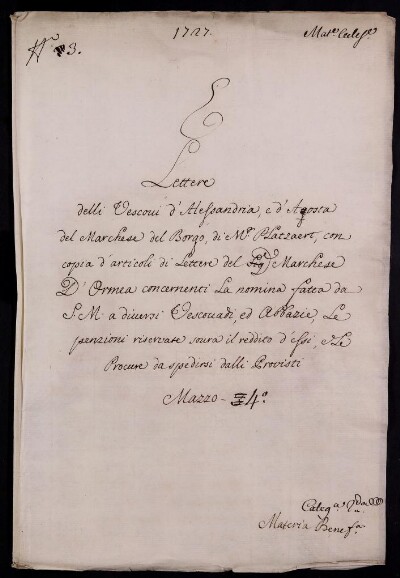 1727.
Mat.e Eccles.e
N.o 3.
Lettere
delli Vescovi d'Alessandria, e d'Aosta
del Marchese del Borgo, di M.r Platzaert, con
copia d'articoli di Lettere del Sig.r Marchese
D'Ormea concernenti La nomina fatta da
S. M. a diversi Vescovadi, ed Abbazie, Le
penzioni riservate sovra il reddito d'essi, e Le
Procure da spedirsi dalli Provisti
Mazzo - 4.o
Categ.a
Materia Benef.a